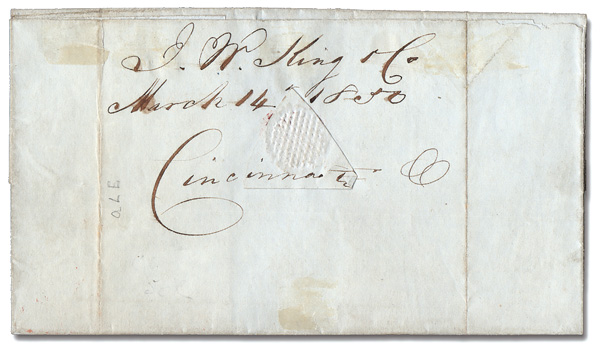 J. W. King & Co
March 14th 1850
Cincinnati O